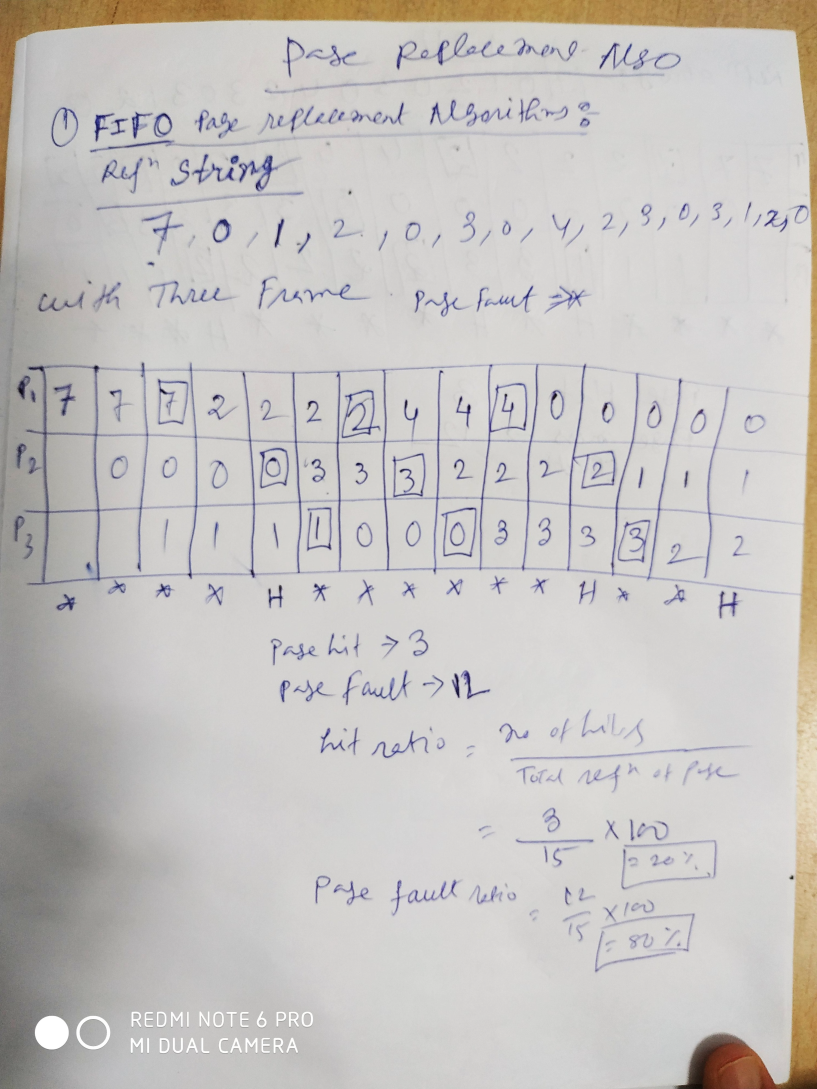 Page Replacement Algo
① FIFO Page replacement Algorithms:
Refⁿ String
7, 0, 1, 2, 0, 3, 0, 4, 2, 3, 0, 3, 1, 2, 0
with Three Frame Page Fault ⇒ *
P1 7 7 7 2 2 2 2 4 4 4 0 0 0 0 0
P2 0 0 0 0 3 3 3 2 2 2 2 1 1 1
P3 1 1 1 1 0 0 0 3 3 3 3 2 2
* * * * H * * * * * * H * * H
Page hit → 3
Page fault → 12
hit ratio = no of hits
Total refⁿ of page
= 3/15 × 100
= 20%.
Page fault ratio = 12/15 × 100
= 80%
REDMI NOTE 6 PRO
MI DUAL CAMERA